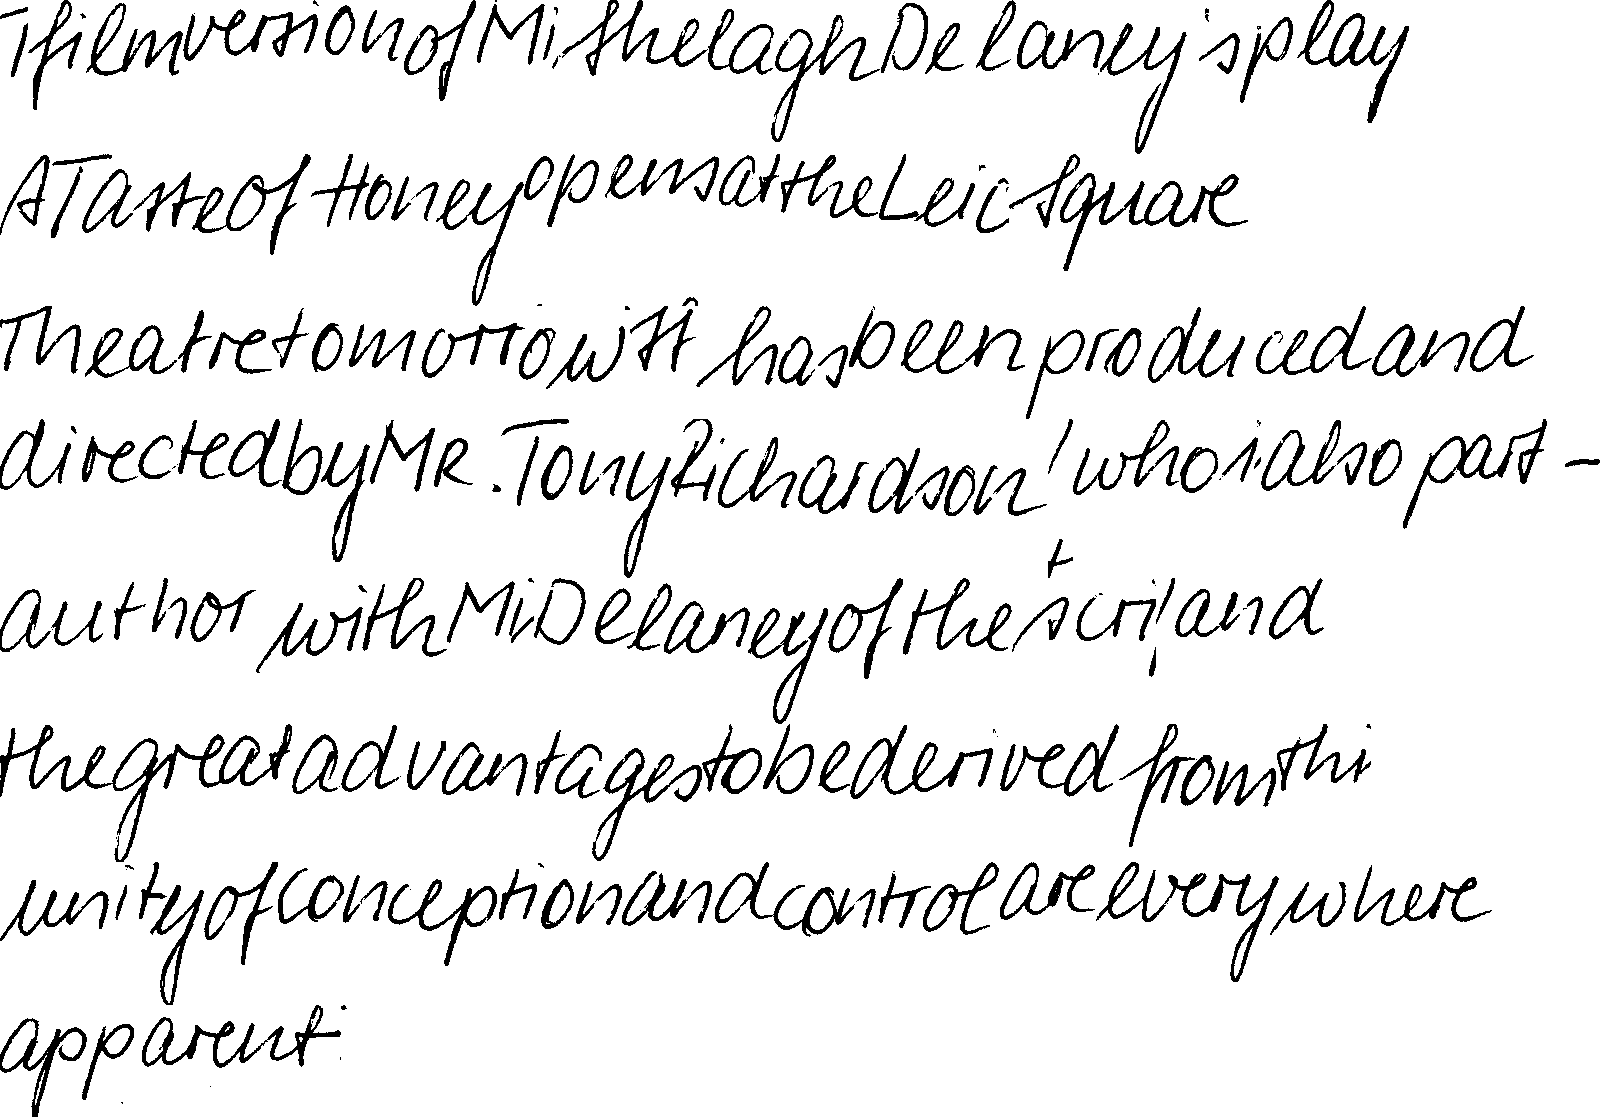 T film version of Mi Shelagh Delaney's play
A Taste of Honey opens at the Leic Square
Theatre tomorrow It has been produced and
directed by MR. Tony Richardson, who i also part-
author with Mi Delaney of the and
the great advantages to be derived from thi
unity of conception and control are everywhere
apparent.